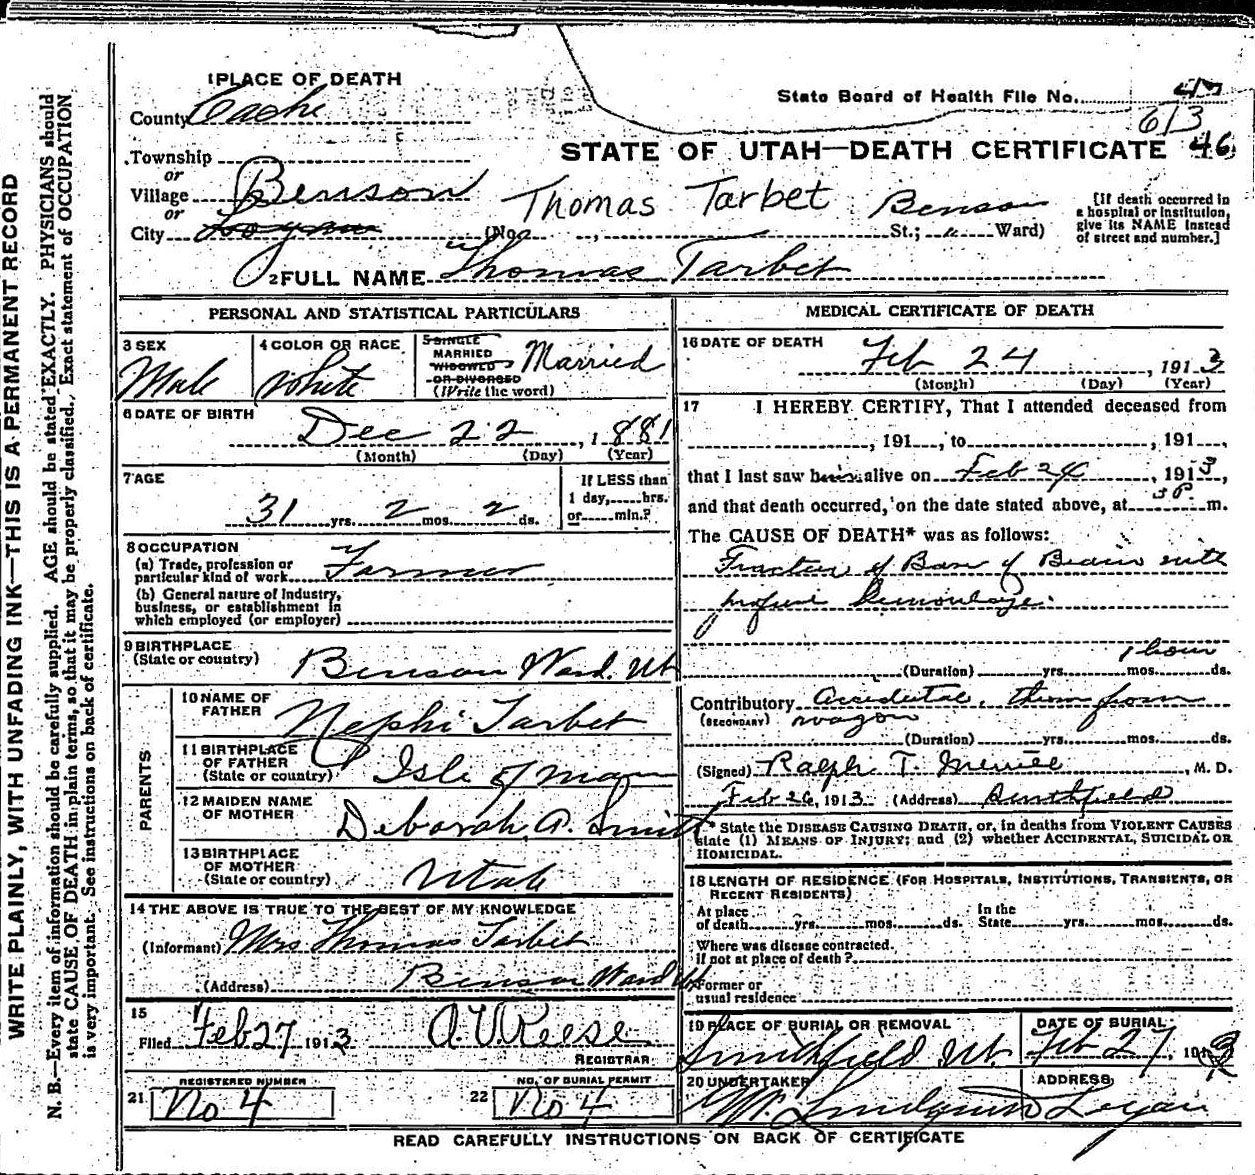 1 PLACE OF DEATH
County Cache
State Board of Health File No. 47
613
Township
or
STATE OF UTAH—DEATH CERTIFICATE 46
Village Benson
or
Thomas Tarbet
City Logan (No. , Benson St.; " Ward)
[If death occurred in
a hospital or institution,
give its NAME instead
of street and number.]
2 FULL NAME Thomas Tarbet
WRITE PLAINLY, WITH UNFADING INK—THIS IS A PERMANENT RECORD
N. B.—Every item of information should be carefully supplied. AGE should be stated EXACTLY. PHYSICIANS should
state CAUSE OF DEATH in plain terms, so that it may be properly classified. Exact statement of OCCUPATION
is very important. See instructions on back of certificate.
PERSONAL AND STATISTICAL PARTICULARS
3 SEX
Male
4 COLOR OR RACE
White
5 SINGLE
MARRIED
WIDOWED
OR DIVORCED
(Write the word)
Married
6 DATE OF BIRTH
Dec 22, 1881
(Month) (Day) (Year)
7 AGE
31 yrs. 2 mos. 2 ds.
If LESS than
1 day, hrs.
or min.?
8 OCCUPATION
(a) Trade, profession or
particular kind of work Farmer
(b) General nature of Industry,
business, or establishment in
which employed (or employer)
9 BIRTHPLACE
(State or country) Benson Ward, Ut
PARENTS
10 NAME OF
FATHER Nephi Tarbet
11 BIRTHPLACE
OF FATHER
(State or country) Isle of Man
12 MAIDEN NAME
OF MOTHER Deborah A. Smith
13 BIRTHPLACE
OF MOTHER
(State or country) Utah
14 THE ABOVE IS TRUE TO THE BEST OF MY KNOWLEDGE
(Informant) Mrs Thomas Tarbet
(Address) Benson Ward Ut
15
Filed Feb 27 1913 A. V. Reese
REGISTRAR
21 REGISTERED NUMBER
No 4
22 NO. OF BURIAL PERMIT
No 4
MEDICAL CERTIFICATE OF DEATH
16 DATE OF DEATH
Feb 24, 1913
(Month) (Day) (Year)
17 I HEREBY CERTIFY, That I attended deceased from
, 191 , to , 191 ,
that I last saw him alive on Feb 24, 1913,
and that death occurred, on the date stated above, at 3 P m.
The CAUSE OF DEATH* was as follows:
Fracture of Base of Brain with
profuse Hemorrhage.
1 hour
(Duration) yrs. mos. ds.
Contributory accidental, thrown from
(SECONDARY) wagon
(Duration) yrs. mos. ds.
(Signed) Ralph T. Merrill, M. D.
Feb 26, 1913 (Address) Smithfield
* State the DISEASE CAUSING DEATH, or, in deaths from VIOLENT CAUSES
state (1) MEANS OF INJURY; and (2) whether ACCIDENTAL, SUICIDAL OR
HOMICIDAL.
18 LENGTH OF RESIDENCE (FOR HOSPITALS, INSTITUTIONS, TRANSIENTS, OR
RECENT RESIDENTS)
At place
of death yrs. mos. ds.
In the
State yrs. mos. ds.
Where was disease contracted.
if not at place of death?
Former or
usual residence
19 PLACE OF BURIAL OR REMOVAL
Smithfield Ut.
DATE OF BURIAL
Feb 27, 1913
20 UNDERTAKER
Wm. Lindquist
ADDRESS
Logan
READ CAREFULLY INSTRUCTIONS ON BACK OF CERTIFICATE